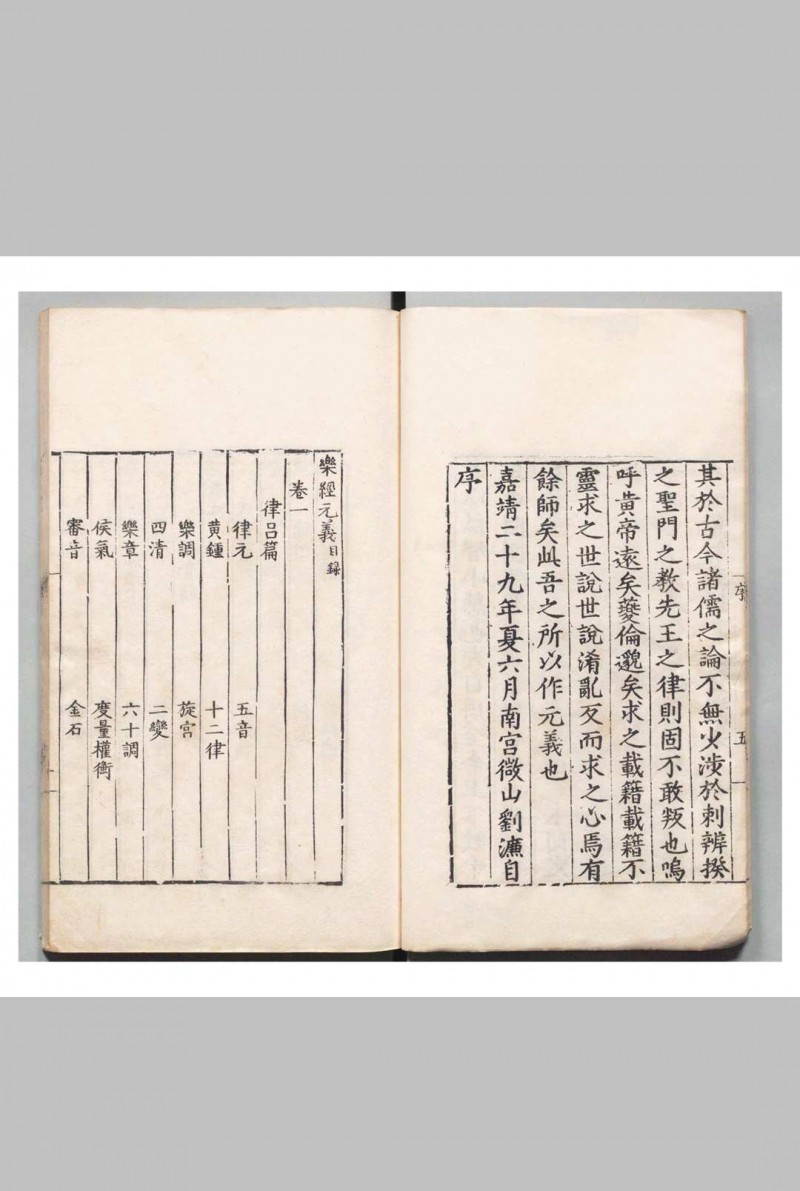 其於古今諸儒之論不無少涉於刺辨揆
之聖門之教先王之律則固不敢叛也嗚
呼黄帝遠矣夔倫邈矣求之載籍載籍不
靈求之世說世說淆亂反而求之心焉有
餘師矣此吾之所以作元義也
嘉靖二十九年夏六月南宫微山劉濂自
序
序
五
樂經元義目録
卷一
律吕篇
律元 五音
黄鍾 十二律
樂調 旋宫
四清 二變
樂章 六十調
侯氣 度量權衡
審音 金石